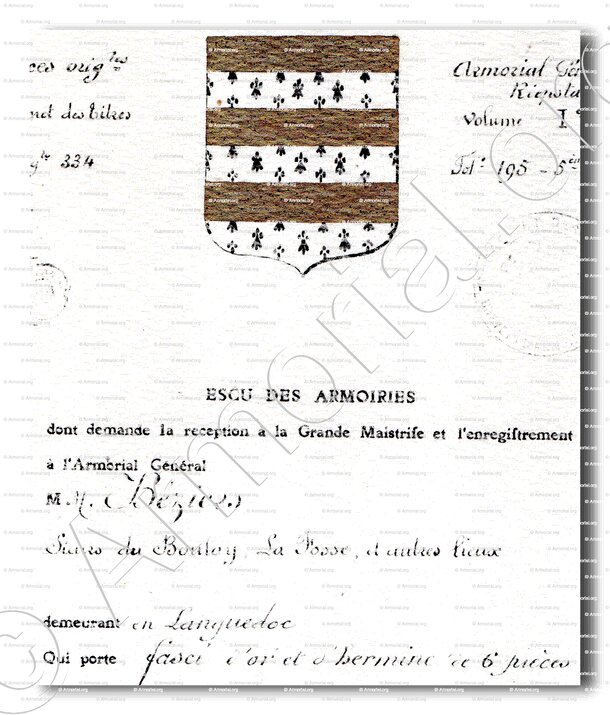 ces orig^les
net des titres
g^te 334
Armorial Gén
Riepsta
Volume I^e
Fol^o 195 - 5^em
ESCU DES ARMOIRIES
dont demande la reception a la Grande Maistrise et l'enregistrement
à l'Armorial Général
M M. Béziers
Sieurs du Boulay, La Fosse, d'autres lieux
demeurant en Languedoc
Qui porte fascé d'or et d'hermine de 6 pièces
© Armorial.org